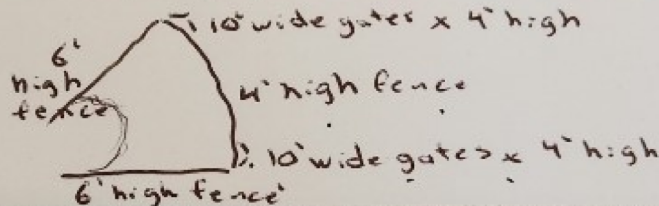 10' wide gates x 4' high
6'
high
fence
4' high fence
10' wide gates x 4' high
6' high fence